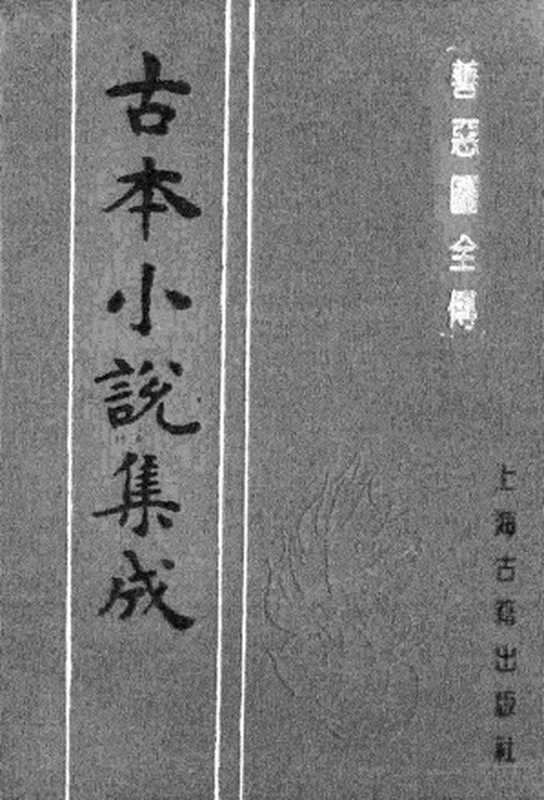 善惡圖全傳
古本小說集成
上海古籍出版社